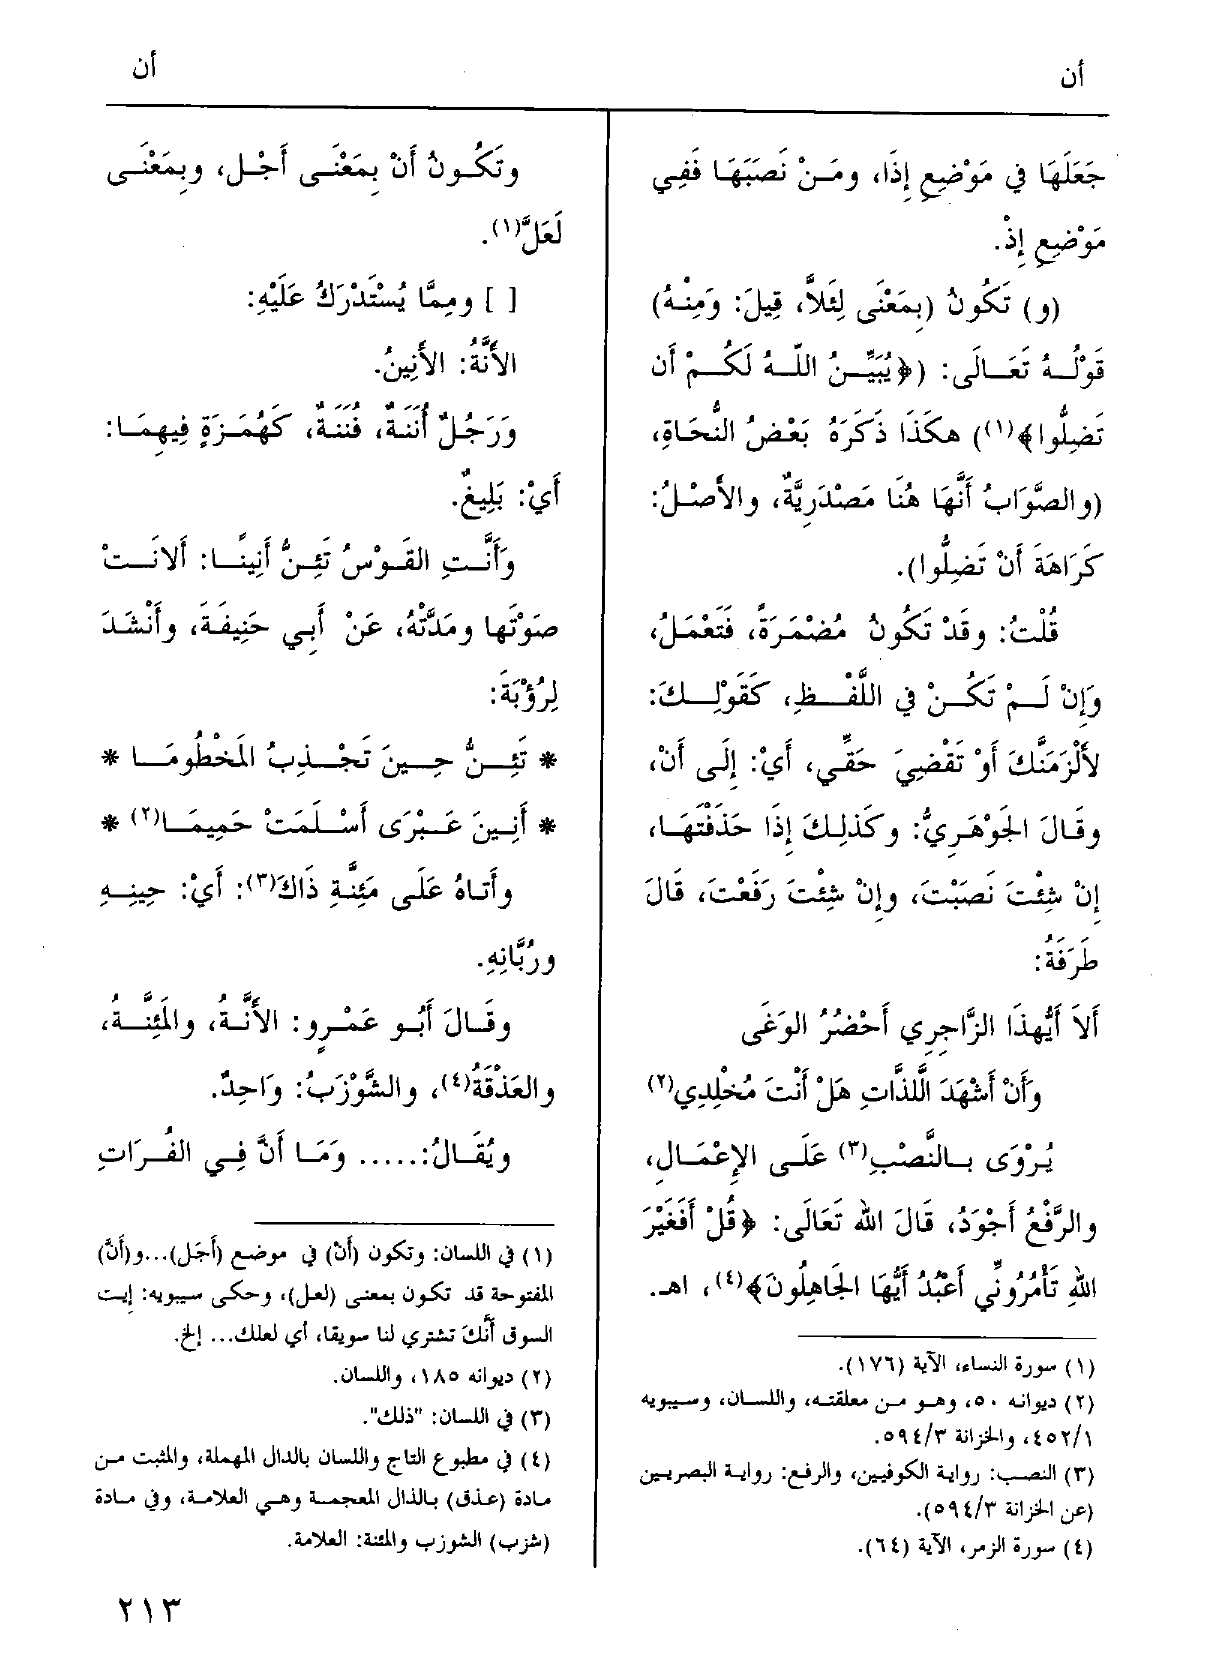 أن
أن
جَعَلَهَا في مَوْضِعِ إِذَا، ومَنْ نَصَبَهَا فَفِي
مَوْضِعِ إِذْ.
(و) تَكُونُ (بِمَعْنَى لِئَلاَّ، قِيلَ: وَمِنْهُ)
قَوْلُهُ تَعَالَى: (﴿يُبَيِّنُ اللهُ لَكُمْ أن
تَضِلُّوا﴾(١)) هكَذَا ذَكَرَهُ بَعْضُ النُّحَاةِ،
(والصَّوَابُ أَنَّهَا هُنَا مَصْدَرِيَّةٌ، والأَصْلُ:
كَرَاهَةَ أَنْ تَضِلُّوا).
قُلْتُ: وقَدْ تَكُونُ مُضْمَرَةً، فَتَعْمَلُ،
وَإِنْ لَمْ تَكُنْ في اللَّفْظِ، كَقَوْلِكَ:
لأَلْزَمَنَّكَ أَوْ تَقْضِيَ حَقِّي، أَيْ: إِلَى أَنْ،
وقَالَ الجَوْهَرِيُّ: وكَذلِكَ إِذَا حَذَفْتَهَا،
إِنْ شِئْتَ نَصَبْتَ، وإِنْ شِئْتَ رَفَعْتَ، قَالَ
طَرَفَةُ:
أَلاَ أَيُّهذَا الزَّاجِرِي أَحْضُرُ الوَغَى
وَأَنْ أَشْهَدَ اللَّذَّاتِ هَلْ أَنْتَ مُخْلِدِي(٢)
يُرْوَى بِالنَّصْبِ(٣) عَلَى الإِعْمَالِ،
والرَّفْعُ أَجْوَدُ، قَالَ الله تَعَالَى: ﴿قُلْ أَفَغَيْرَ
اللهِ تَأْمُرُونِّي أَعْبُدُ أَيُّهَا الجَاهِلُونَ﴾(٤)، اهـ.
(١) سورة النساء، الآية (١٧٦).
(٢) ديوانه ٥٠، وهو من معلقته، واللسان، وسيبويه
٤٥٢/١، والخزانة ٥٩٤/٣.
(٣) النصب: رواية الكوفيين، والرفع: رواية البصريين
(عن الخزانة ٥٩٤/٣).
(٤) سورة الزمر، الآية (٦٤).
وتَكُونُ أَنْ بِمَعْنَى أَجْل، وبِمَعْنَى
لَعَلَّ(١).
[ ] ومِمَّا يُسْتَدْرَكُ عَلَيْهِ:
الأَنَّةُ: الأَنِينُ.
وَرَجُلٌ أُنَنَةٌ، قُنَنَةٌ، كَهُمَزَةٍ فِيهِمَا:
أَيْ: بَلِيغٌ.
وَأَنَّتِ القَوْسُ تَئِنُّ أَنِينًا: أَلانَتْ
صَوْتَها ومَدَّتْهُ، عَنْ أَبِي حَنِيفَةَ، وأَنْشَدَ
لِرُؤْبَةَ:
* تَئِنُّ حِينَ تَجْذِبُ المَخْطُومَا *
* أَنِينَ عَبْرَى أَسْلَمَتْ حَمِيمَا(٢) *
وأَتاهُ عَلَى مَئِنَّةِ ذَاكَ(٣): أَيْ: حِينِهِ
ورُبَّانِهِ.
وقَالَ أَبُو عَمْرٍو: الأَنَّةُ، والمَئِنَّةُ،
والعَذْقَةُ(٤)، والشَّوْزَبُ: وَاحِدٌ.
ويُقَالُ:..... وَمَا أَنَّ فِي الفُرَاتِ
(١) في اللسان: وتكون (أنْ) في موضع (أَجَل)...و(أنَّ)
المفتوحة قد تكون بمعنى (لعل)، وحكى سيبويه: إيت
السوق أَنَّكَ تشتري لنا سويقا، أي لعلك... إلخ.
(٢) ديوانه ١٨٥، واللسان.
(٣) في اللسان: "ذلك".
(٤) في مطبوع التاج واللسان بالدال المهملة، والمثبت من
مادة (عذق) بالذال المعجمة وهي العلامة، وفي مادة
(شزب) الشوزب والمئنة: العلامة.
٢١٣